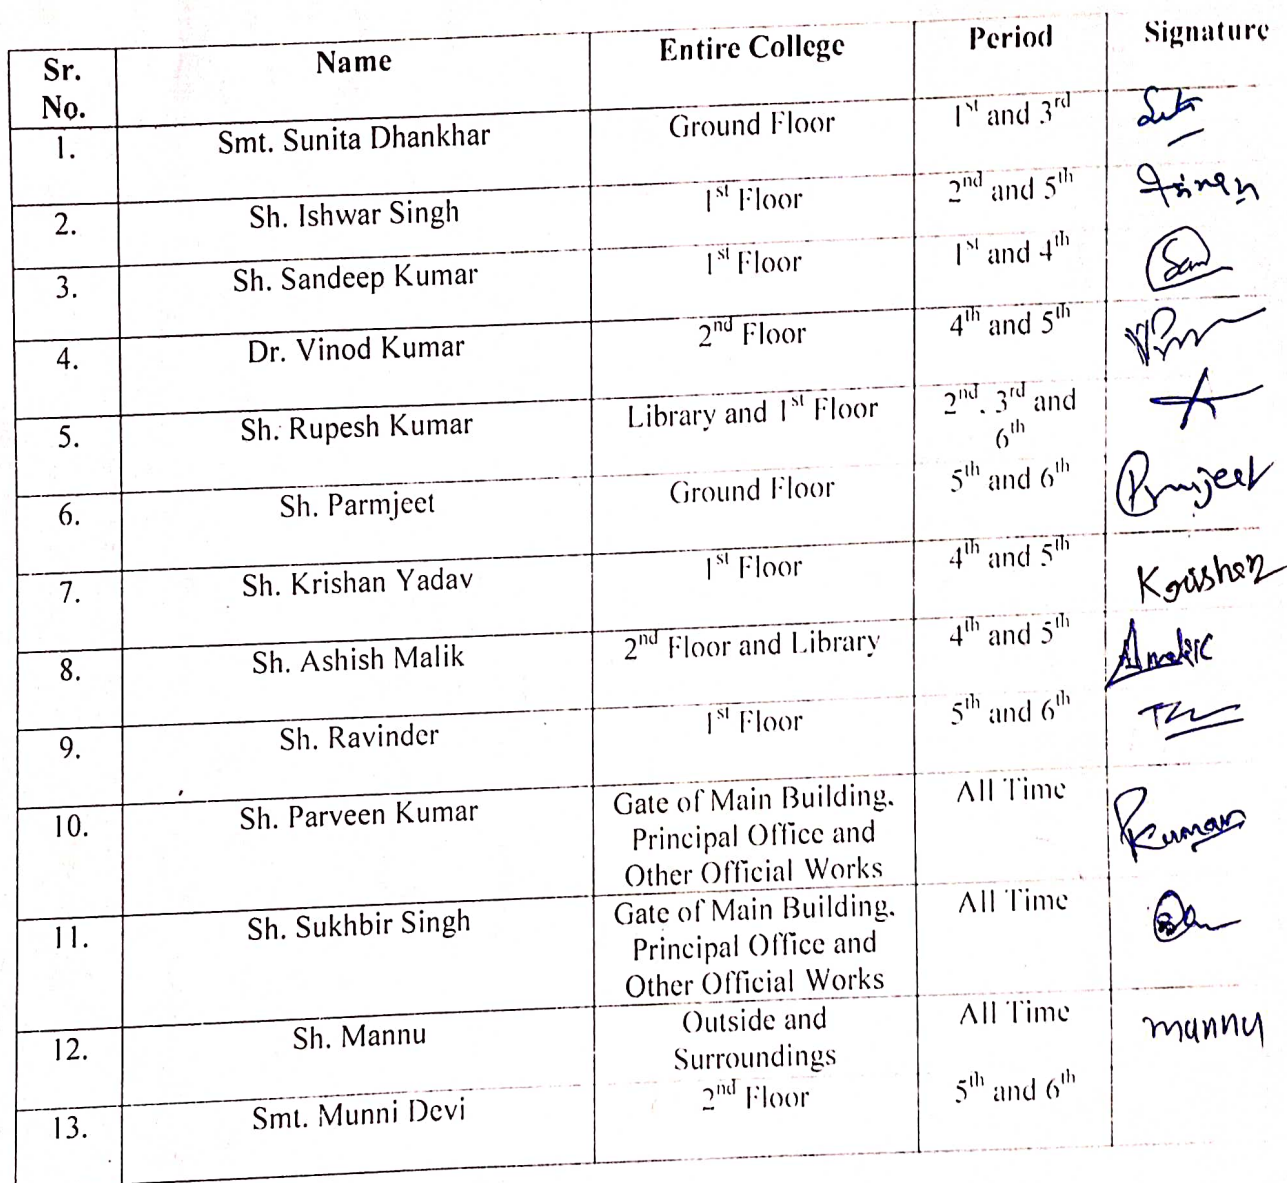 Sr. No. Name Entire College Period Signature
1. Smt. Sunita Dhankhar Ground Floor 1st and 3rd
2. Sh. Ishwar Singh 1st Floor 2nd and 5th
3. Sh. Sandeep Kumar 1st Floor 1st and 4th San
4. Dr. Vinod Kumar 2nd Floor 4th and 5th
5. Sh. Rupesh Kumar Library and 1st Floor 2nd, 3rd and
6th
6. Sh. Parmjeet Ground Floor 5th and 6th Prmjeet
7. Sh. Krishan Yadav 1st Floor 4th and 5th Krishan
8. Sh. Ashish Malik 2nd Floor and Library 4th and 5th Amalik
9. Sh. Ravinder 1st Floor 5th and 6th
10. Sh. Parveen Kumar Gate of Main Building, All Time PKumar
Principal Office and
Other Official Works
11. Sh. Sukhbir Singh Gate of Main Building, All Time
Principal Office and
Other Official Works
12. Sh. Mannu Outside and All Time mannu
Surroundings
13. Smt. Munni Devi 2nd Floor 5th and 6th